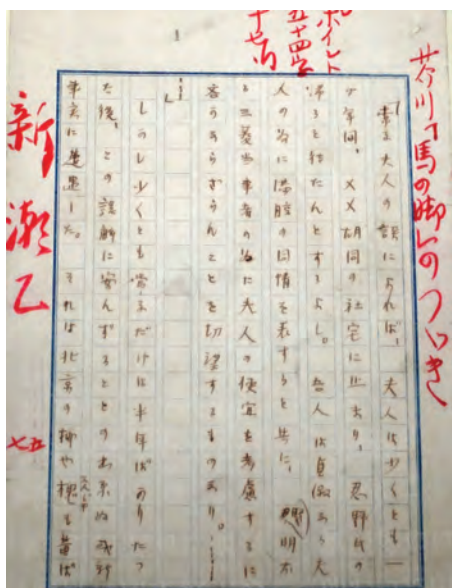 芥川「馬の脚」のつゞき
ポイント
五十四字
十七行
1
「常子夫人の談によれば、夫人は少くとも一
ケ年間、××胡同の社宅に止まり、忍野氏の
帰るを待たんとするよし。吾人は貞淑なる夫
人の為に満腔の同情を表すると共に、賢明な
る三菱当事者の為に夫人の便宜を考慮するに
吝かならざらんことを切望するものなり。……
……」
しかし少くとも常子だけは半年ばかりたつ
た後、この誤解に安んずることの出来ぬ或新
事実に遭遇した。それは北京の柳や槐も黄ば
新潮乙
七五